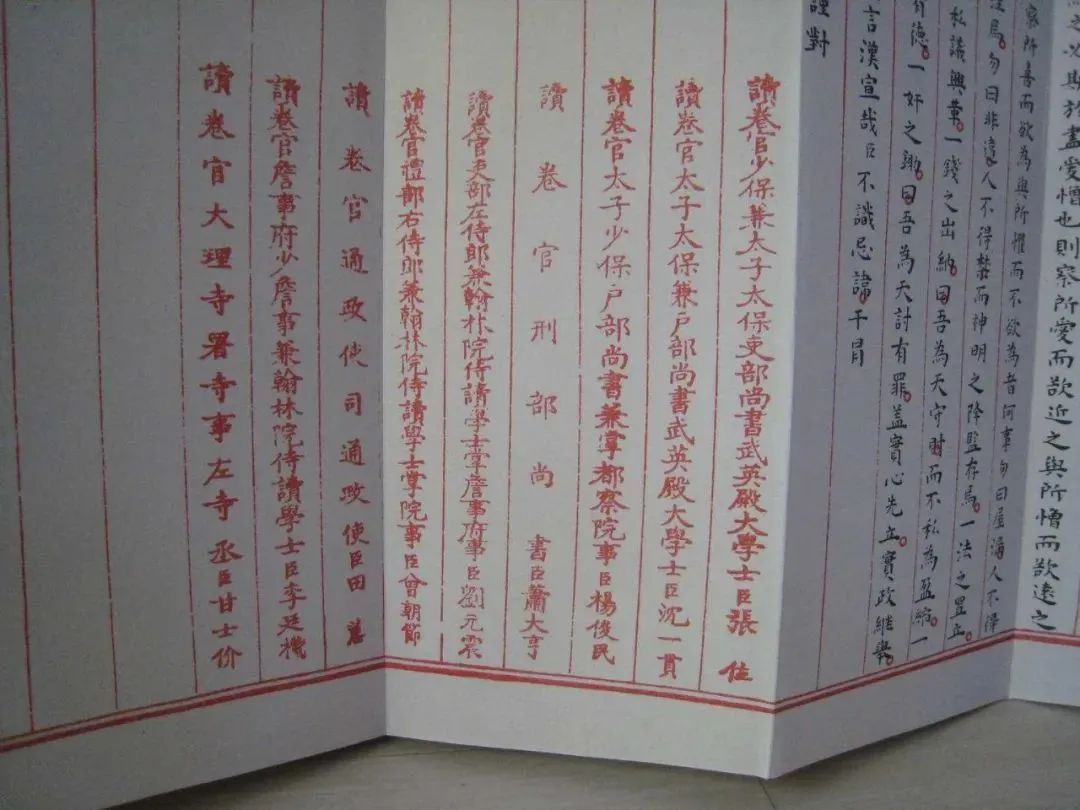 之必期於盡愛憎也則察所愛而欲近之與所憎而欲遠之
察所喜而欲為與所懼而不欲為者何事勿曰屋漏人不得
焉勿曰非違人不得禁而神明之降監存焉一法之置立
私議興革一錢之出納曰吾為天守財而不私為盈縮一
有德一奸之鋤曰吾為天討有罪蓋實心先立實政繼舉
言漢宣哉臣不識忌諱干冒
謹對
讀卷官少保兼太子太保吏部尚書武英殿大學士臣張位
讀卷官太子太保兼戶部尚書武英殿大學士臣沈一貫
讀卷官太子少保戶部尚書兼掌都察院事臣楊俊民
讀卷官刑部尚書臣蕭大亨
讀卷官吏部左侍郎兼翰林院侍讀學士掌詹事府事臣劉元震
讀卷官禮部右侍郎兼翰林院侍讀學士掌院事臣曾朝節
讀卷官通政使司通政使臣田蕙
讀卷官詹事府少詹事兼翰林院侍讀學士臣李廷機
讀卷官大理寺署寺事左寺丞臣甘士价